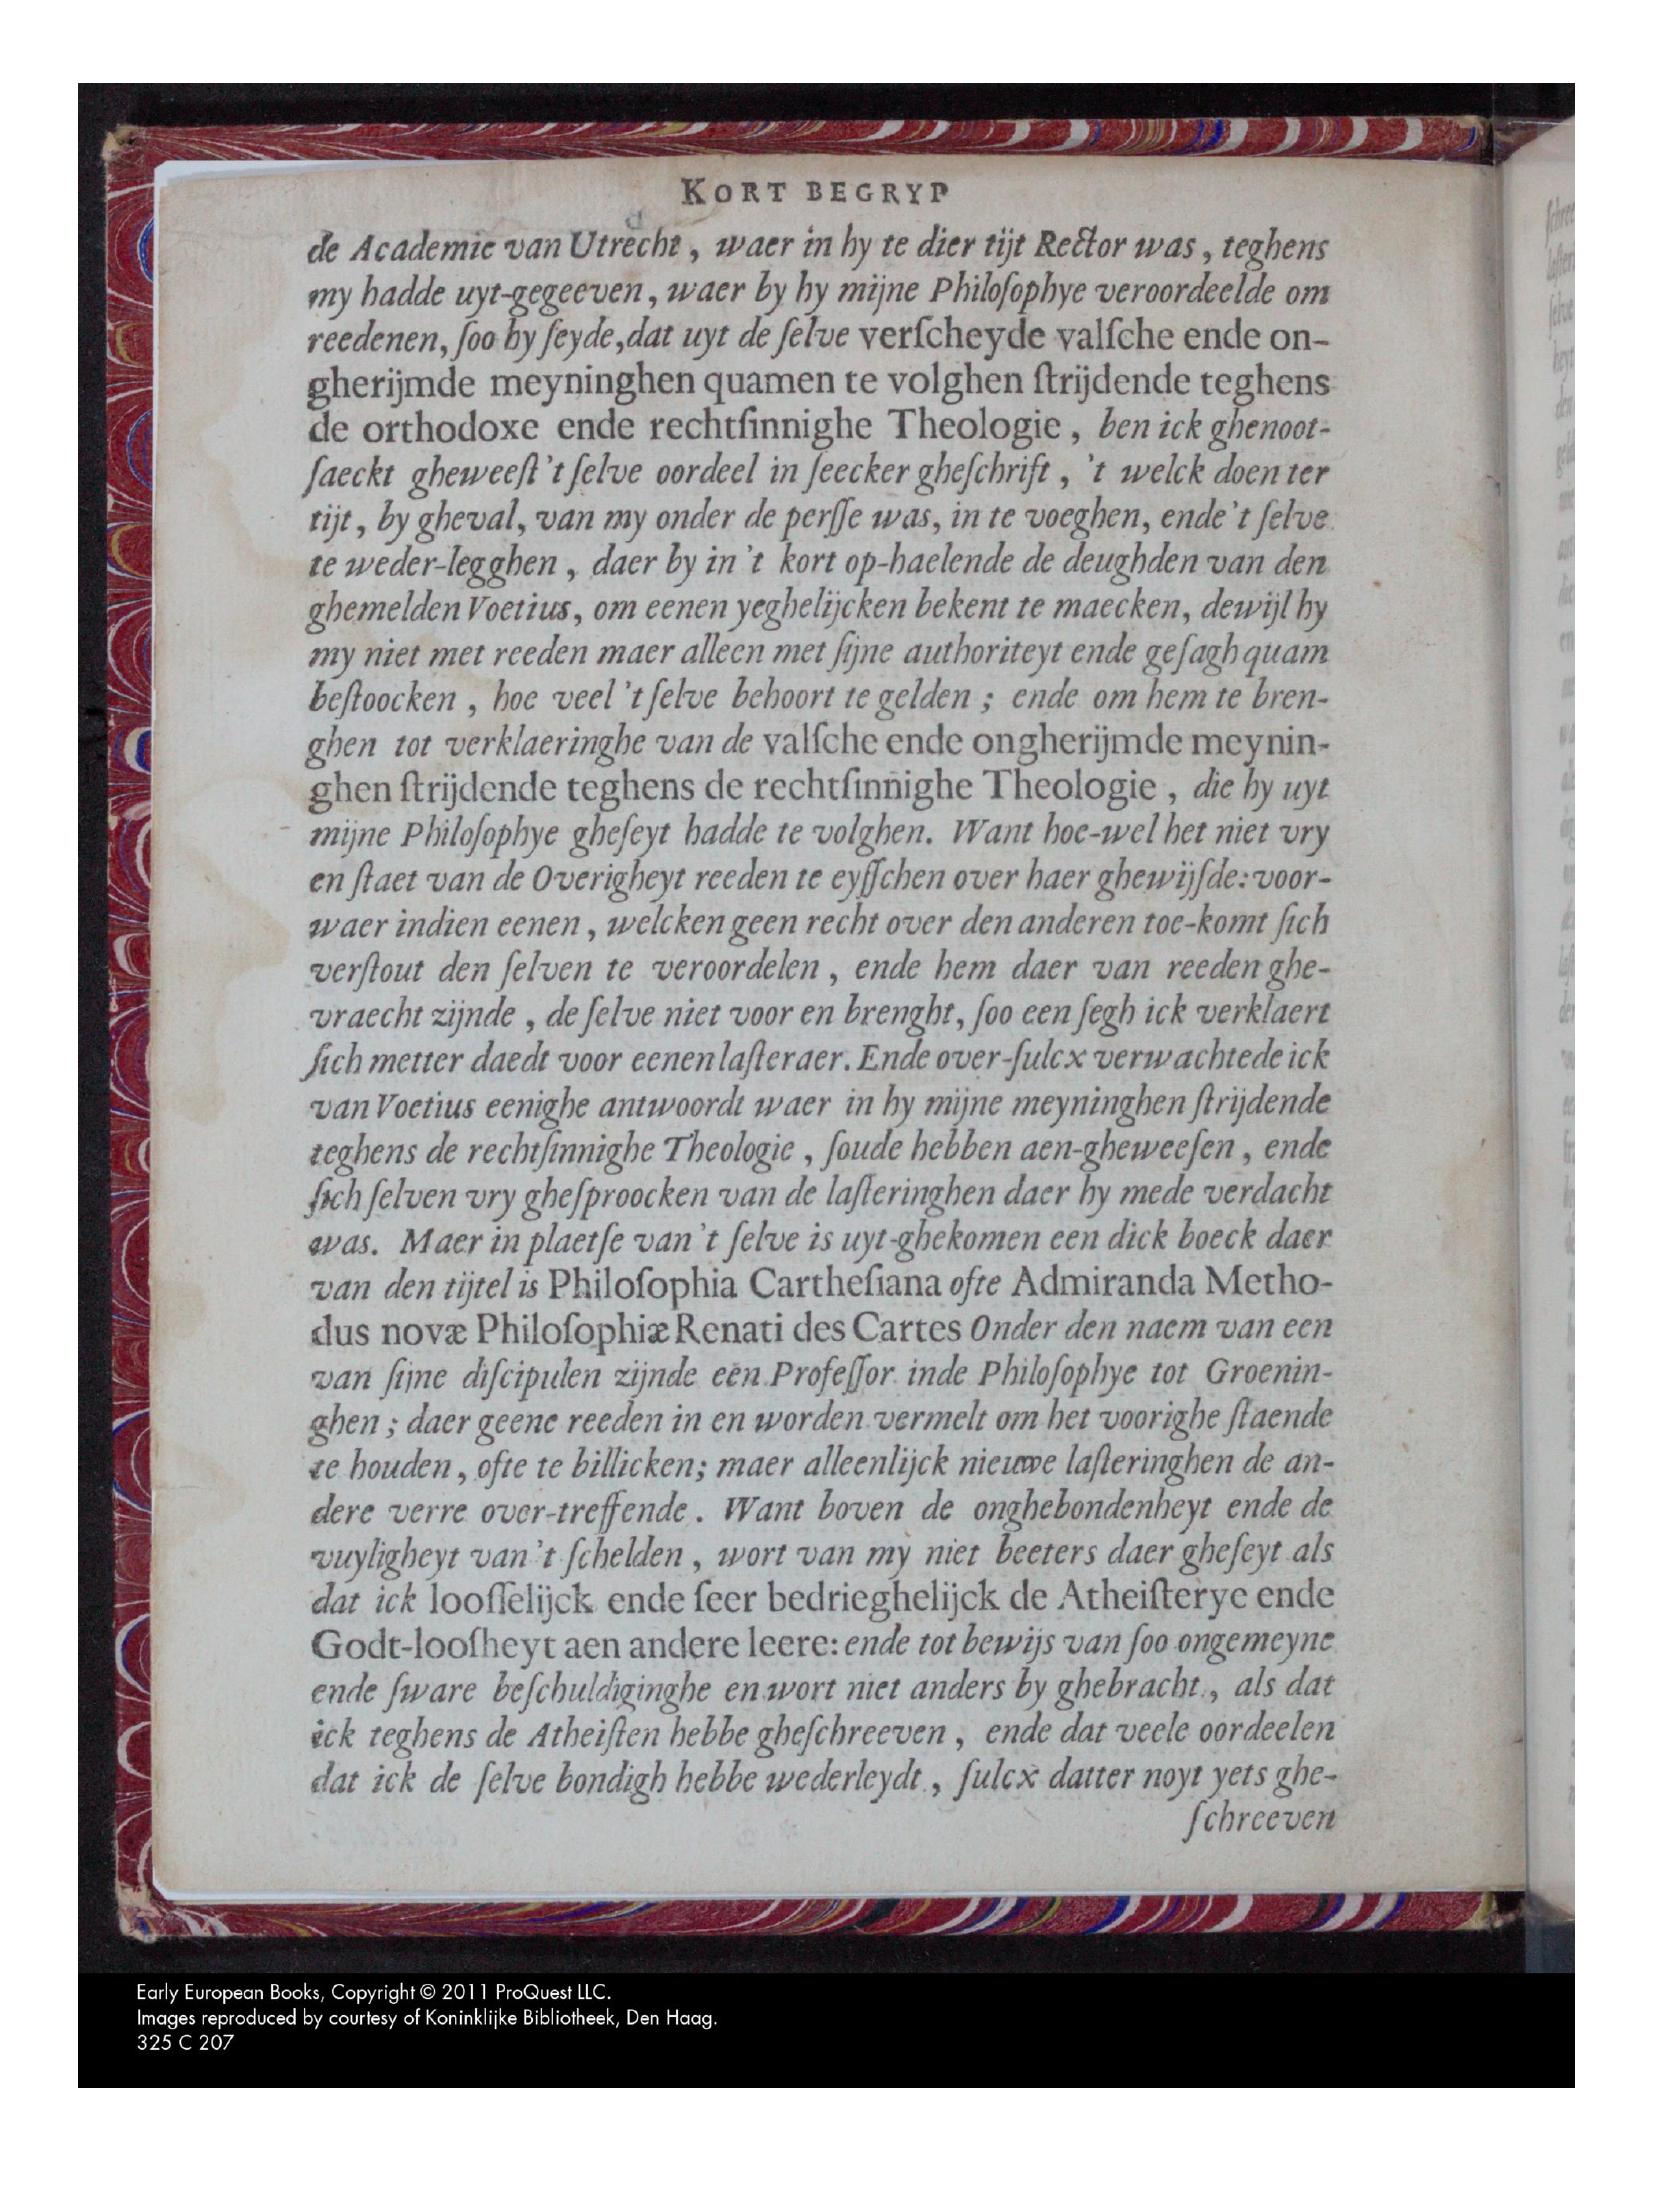 KORT BEGRYP
de Academie van Utrecht, waer in hy te dier tijt Rector was, teghens
my hadde uyt-gegeeven, waer by hy mijne Philoſophye veroordeelde om
reedenen, ſoo hy ſeyde, dat uyt de ſelve verſcheyde valſche ende on-
gherijmde meyninghen quamen te volghen ſtrijdende teghens
de orthodoxe ende rechtſinnighe Theologie, ben ick ghenoot-
ſaeckt gheweeſt 't ſelve oordeel in ſeecker gheſchrift, 't welck doen ter
tijt, by gheval, van my onder de perſſe was, in te voeghen, ende 't ſelve
te weder-legghen, daer by in 't kort op-haelende de deughden van den
ghemelden Voetius, om eenen yeghelijcken bekent te maecken, dewijl hy
my niet met reeden maer alleen met ſijne authoriteyt ende geſagh quam
beſtoocken, hoe veel 't ſelve behoort te gelden; ende om hem te bren-
ghen tot verklaeringhe van de valſche ende ongherijmde meynin-
ghen ſtrijdende teghens de rechtſinnighe Theologie, die hy uyt
mijne Philoſophye gheſeyt hadde te volghen. Want hoe-wel het niet vry
en ſtaet van de Overigheyt reeden te eyſſchen over haer ghewijſde: voor-
waer indien eenen, welcken geen recht over den anderen toe-komt ſich
verſtout den ſelven te veroordelen, ende hem daer van reeden ghe-
vraecht zijnde, de ſelve niet voor en brenght, ſoo een ſegh ick verklaert
ſich metter daedt voor eenen laſteraer. Ende over-ſulcx verwachtede ick
van Voetius eenighe antwoordt waer in hy mijne meyninghen ſtrijdende
teghens de rechtſinnighe Theologie, ſoude hebben aen-gheweeſen, ende
ſich ſelven vry gheſproocken van de laſteringhen daer hy mede verdacht
was. Maer in plaetſe van 't ſelve is uyt-ghekomen een dick boeck daer
van den tijtel is Philoſophia Cartheſiana ofte Admiranda Metho-
dus novæ Philoſophiæ Renati des Cartes Onder den naem van een
van ſijne diſcipulen zijnde een Profeſſor inde Philoſophye tot Groenin-
ghen; daer geene reeden in en worden vermelt om het voorighe ſtaende
te houden, ofte te billicken; maer alleenlijck nieuwe laſteringhen de an-
dere verre over-treffende. Want boven de onghebondenheyt ende de
vuyligheyt van 't ſchelden, wort van my niet beeters daer gheſeyt als
dat ick looſſelijck ende ſeer bedrieghelijck de Atheiſterye ende
Godt-looſheyt aen andere leere: ende tot bewijs van ſoo ongemeyne
ende ſware beſchuldiginghe en wort niet anders by ghebracht, als dat
ick teghens de Atheiſten hebbe gheſchreeven, ende dat veele oordeelen
dat ick de ſelve bondigh hebbe wederleydt, ſulcx datter noyt yets ghe-
ſchreeven
Early European Books, Copyright © 2011 ProQuest LLC.
Images reproduced by courtesy of Koninklijke Bibliotheek, Den Haag.
325 C 207